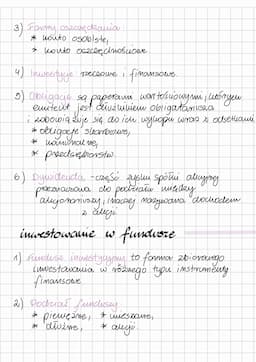 3) Formy oszczędzania
* konto osobiste,
* konto oszczędnościowe
4) Inwestycje rzeczowe i finansowe.
5) Obligacje są papierami wartościowymi, których
emitent jest dłużnikiem obligatariusza
i zobowiązuje się do ich wykupu wraz z odsetkami
* obligacje skarbowe,
* komunalne,
* przedsiębiorstw.
6) Dywidenda - część zysku spółki akcyjnej
przeznaczona do podziału między
akcjonariuszy, inaczej nazywana dochodem
z akcji
inwestowanie w fundusze
1) Fundusz inwestycyjny to forma zbiorowego
inwestowania w różnego typu instrumenty
finansowe
2) Podział funduszy
* pieniężne, * mieszane,
* dłużne, * akcji.